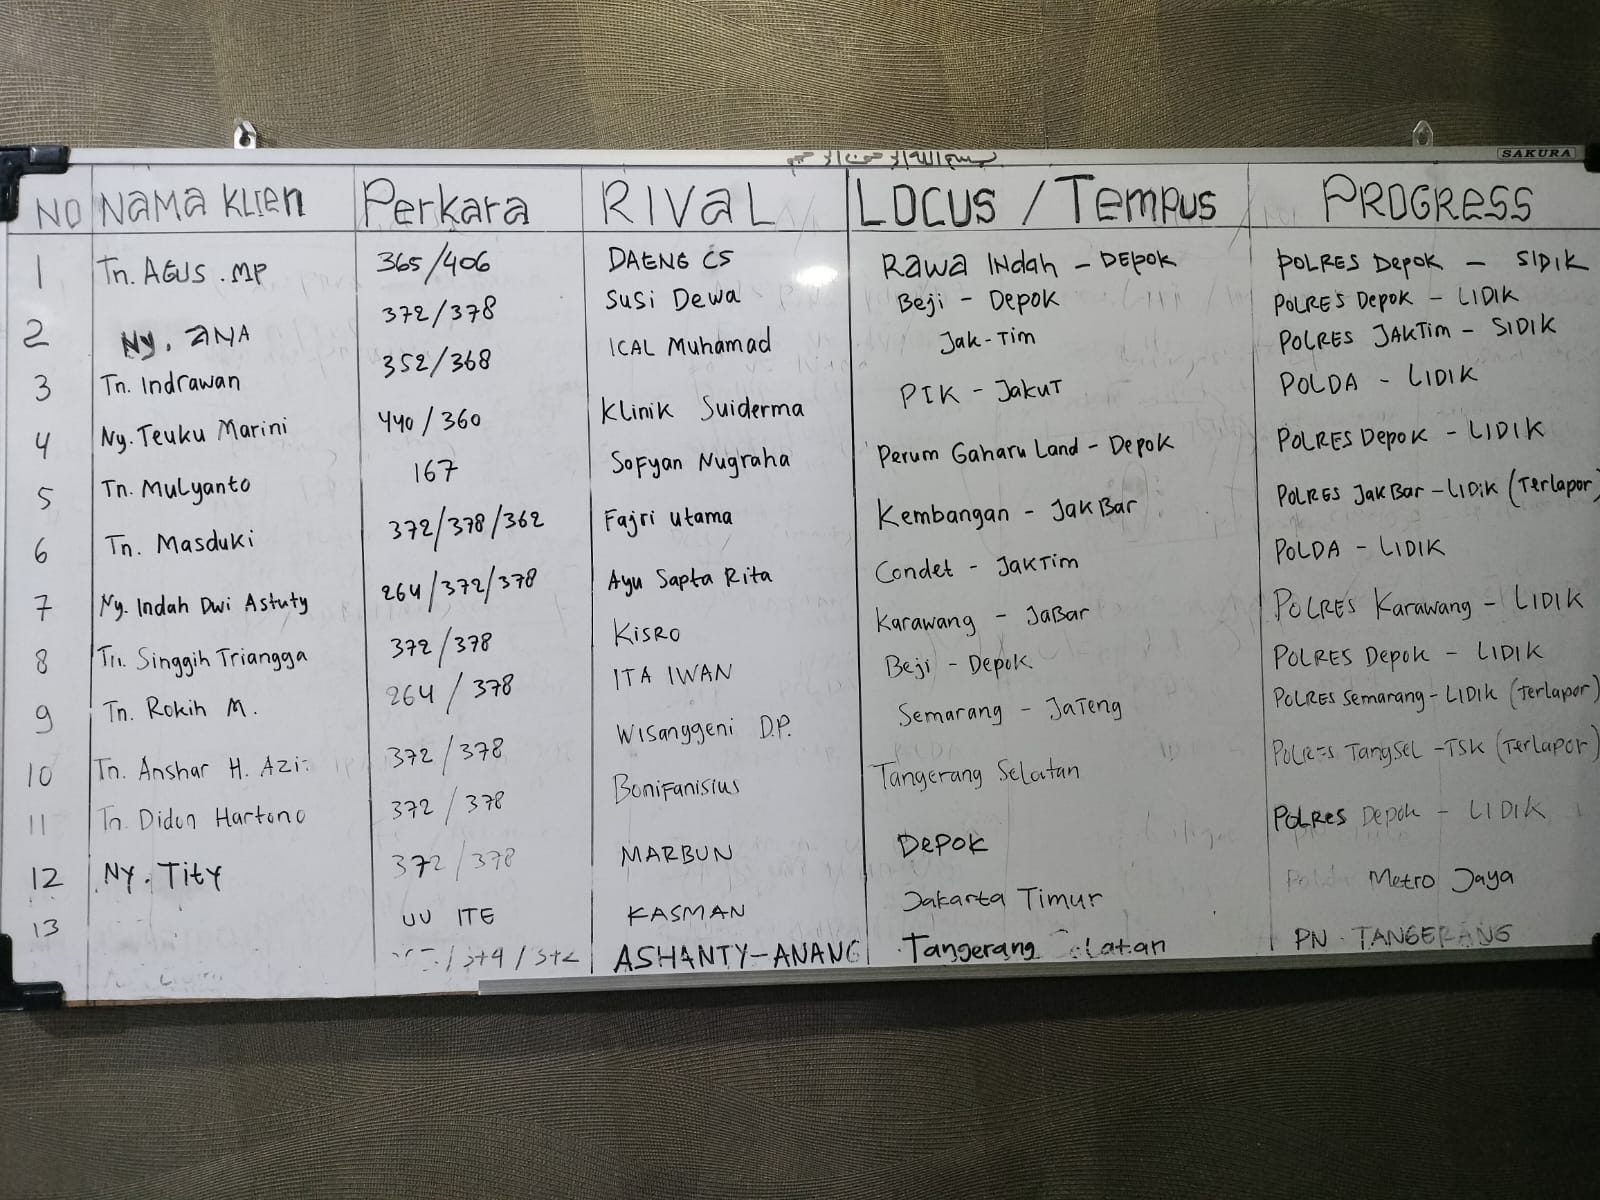 بسم الله الرحمن الرحيم
SAKURA
NO NAMA KLIEN Perkara RIVAL LOCUS / Tempus PROGRESS
1 Tn. AGUS . MP 365/406 DAENG CS Rawa Indah - DEPOK POLRES Depok - SIDIK
2 Ny. ANA 372/378 Susi Dewa Beji - Depok POLRES Depok - LIDIK
3 Tn. Indrawan 352/368 ICAL Muhamad Jak-Tim POLRES JAKTim - SIDIK
4 Ny. Teuku Marini 440/360 Klinik Suiderma PIK - JakuT POLDA - LIDIK
5 Tn. Mulyanto 167 Sofyan Nugraha Perum Gaharu Land - Depok POLRES Depok - LIDIK
6 Tn. Masduki 372/378/362 Fajri utama Kembangan - Jak Bar POLRES Jak Bar - LIDIK (Terlapor)
7 Ny. Indah Dwi Astuty 264/372/378 Ayu Sapta Rita Condet - JakTim POLDA - LIDIK
8 Tn. Singgih Triangga 372/378 KISRO Karawang - JaBar POLRES Karawang - LIDIK
9 Tn. Rokih M. 264/378 ITA IWAN Beji - Depok POLRES Depok - LIDIK
10 Tn. Anshar H. 372/378 Wisanggeni D.P. Semarang - JaTeng POLRES Semarang - LIDIK (Terlapor)
11 Tn. Didon Hartono 372/378 Bonifanisius Tangerang Selatan POLRES TangSel - TSK (Terlapor)
12 Ny. Tity 372/378 MARBUN Depok POLRes Depok - LIDIK
13 UU ITE KASMAN Jakarta Timur Metro Jaya
ASHANTY-ANANG Tangerang PN. TANGERANG